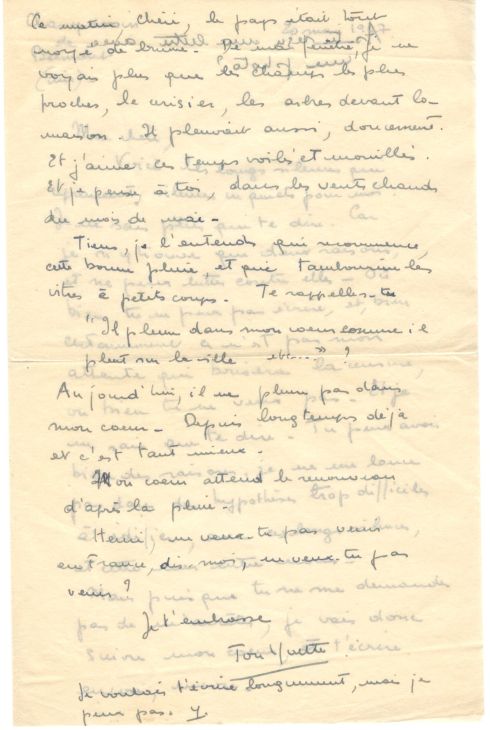 Ce matin, Chéri, le pays était tout
de brume. De ma fenêtre, je ne
voyais plus que les champs les plus
proches, le cerisier, les arbres devant la
maison. Il pleuvait aussi, doucement.
Et j'aime ces temps voilés et mouillés.
Et je pense à toi, dans les vents chauds
du mois de mai -
Tiens, je l'entends qui recommence,
cette bonne pluie, et qui tambourine les
vitres à petits coups. Te rappelles-tu
"Il pleure dans mon coeur comme il
pleut sur la ville etc...." ?
Aujourd'hui, il ne pleure pas dans
mon coeur - Depuis longtemps déjà
et c'est tant mieux -
Mon coeur attend le renouveau
d'après la pluie -
Henri, ne veux-tu pas venir
en France, dis-moi, ne veux-tu pas
venir ?
Je t'embrasse
Ton Yvette
Je voulais t'écrire longuement, mais je
peux pas. Y.